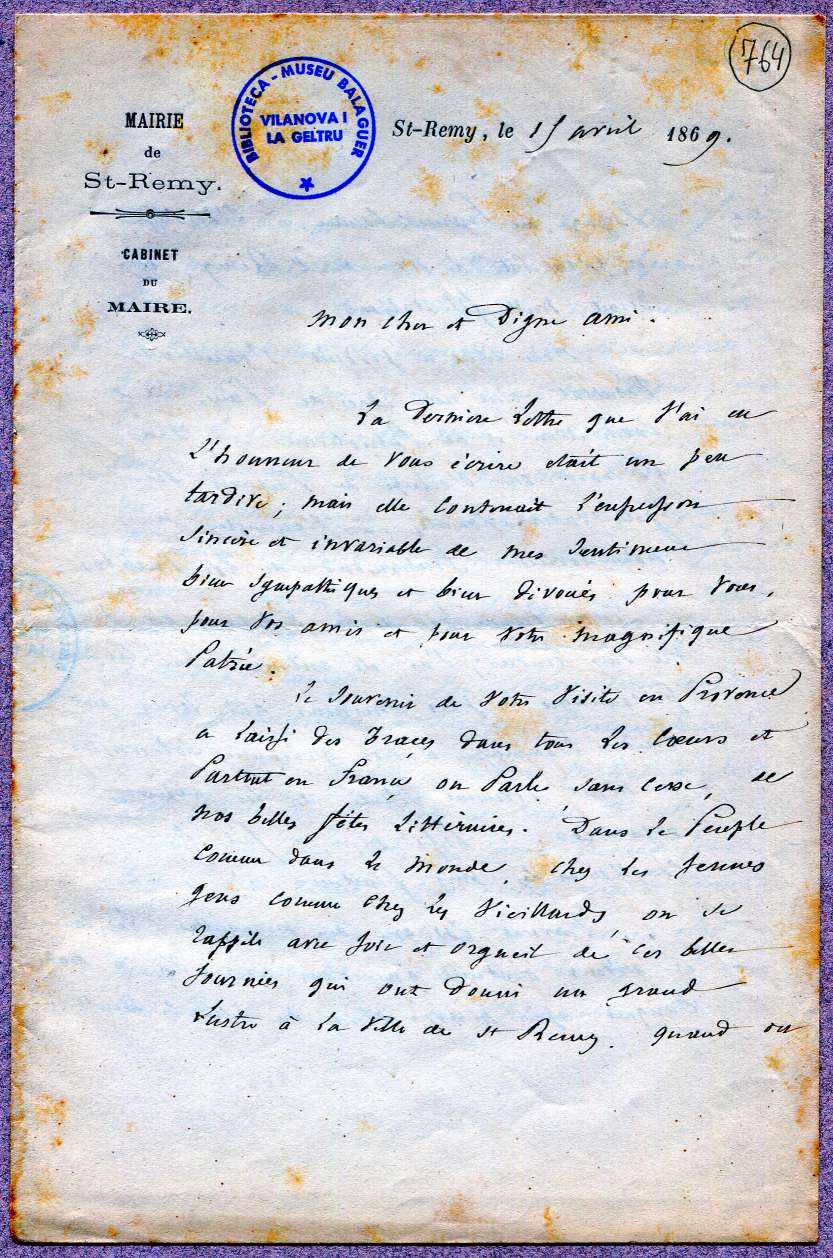 764
MAIRIE
de
St-Remy.
CABINET
DU
MAIRE.
BIBLIOTECA - MUSEU BALAGUER
VILANOVA I
LA GELTRU
St-Remy, le 15 avril 1869.
Mon cher et Digne ami.
La Derniere Lettre que J'ai eu
L'honneur de Vous écrire était un peu
tardive; mais elle Contenait L'expression
Sincère et invariable de mes Sentimens
bien Sympathiques et bien Dévoués pour Vous,
pour Vos amis et pour Votre magnifique
Patrie.
Le Souvenir de Votre Visite en Provence
a Laissé des Traces dans tous Les Cœurs et
Partout en France on Parle sans Cesse, de
nos belles fêtes Littéraires. Dans Le Peuple
Comme dans Le monde, chez Les Jeunes
gens Comme Chez Les Vieillards, on se
rappelle avec Joie et orgueil de Ces belles
Journées qui ont Donné un grand
Lustre à La Ville de St Remy. quand on